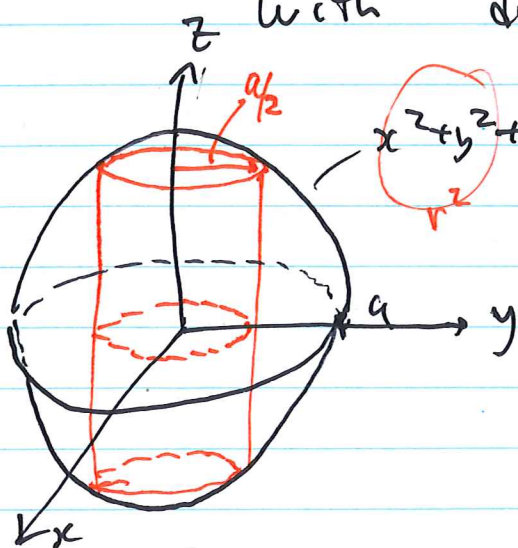 with
z
a/2
x²+y²+
r²
a
y
x